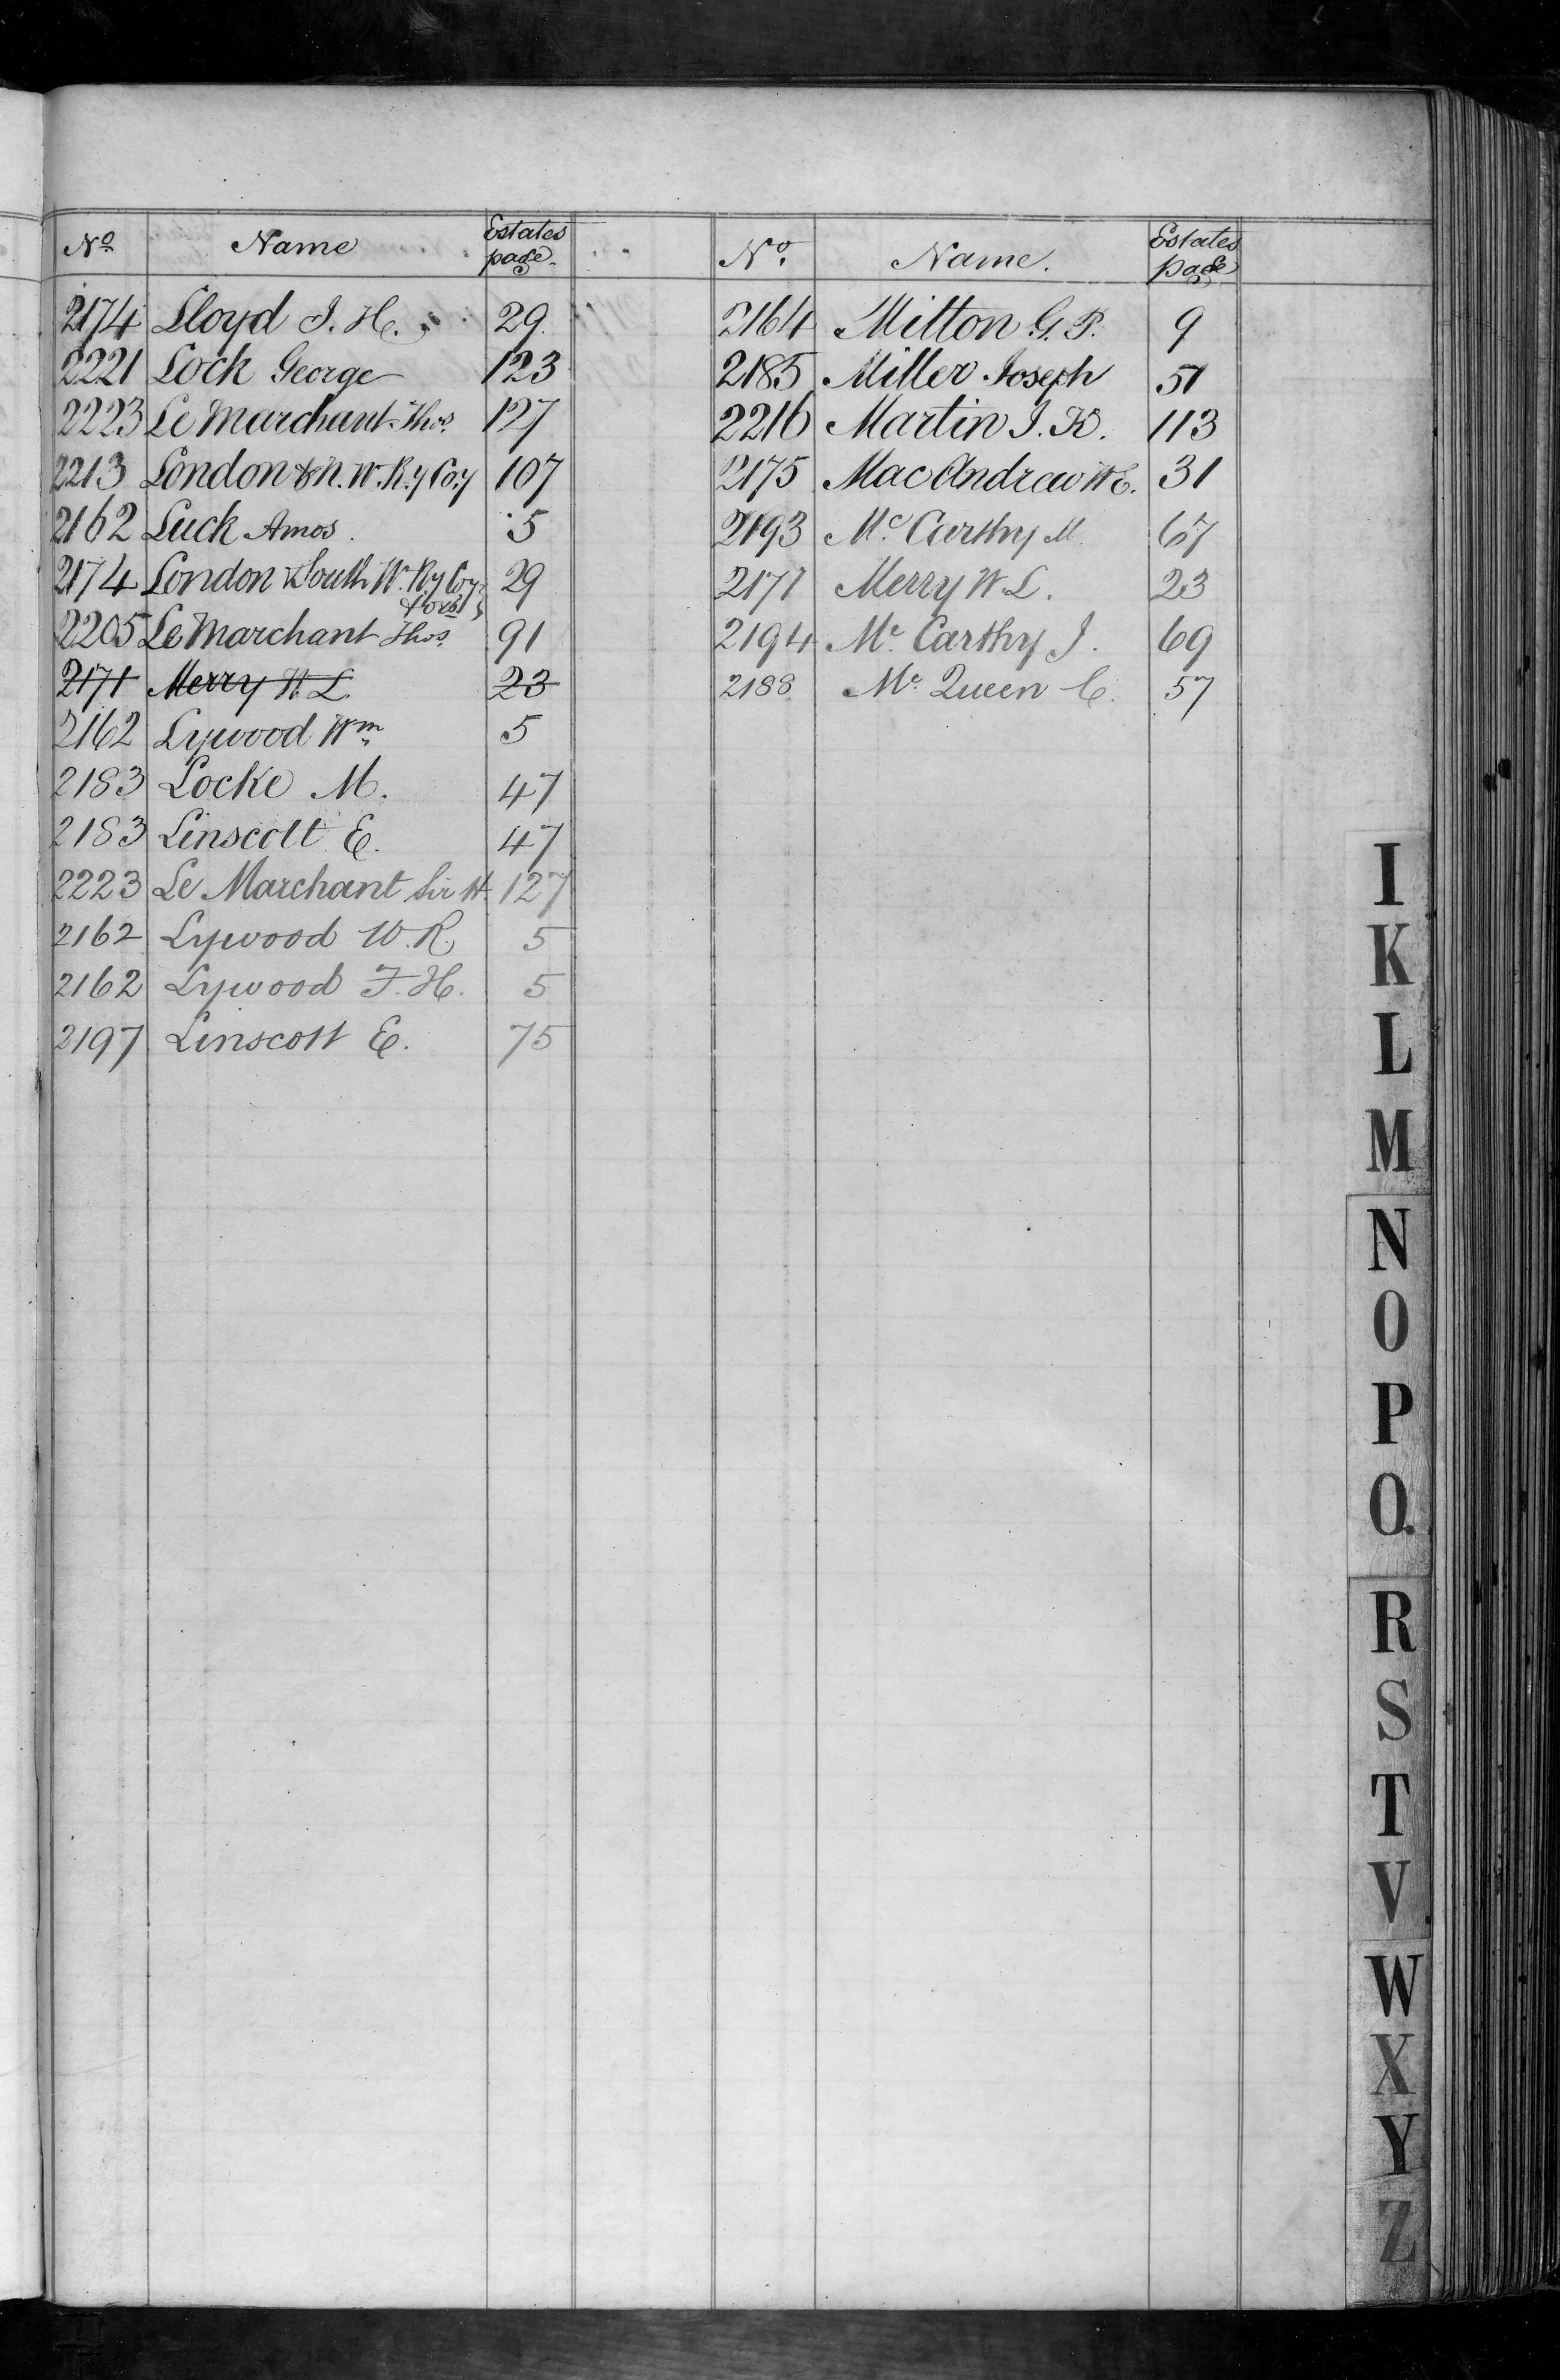 No Name Estates page
2174 Lloyd J. H. 29
2221 Lock George 123
2223 Le Marchant Thos. 127
2213 London & N. W. Ry Coy 107
2162 Luck Amos 5
2174 London & South W. Ry Coy 29
2205 Le Marchant Thos. 91
2171 Merry W L 23
2162 Lywood Wm 5
2183 Locke M. 47
2183 Linscott E. 47
2223 Le Marchant Sir H. 127
2162 Lywood W. R. 5
2162 Lywood F. H. 5
2197 Linscott E. 75
No. Name. Estates page
2164 Mitton G. P. 9
2185 Miller Joseph 51
2216 Martin J. K. 113
2175 Mac Andrew W E. 31
2193 Mc Carthy M. 67
2171 Merry W L. 23
2194 Mc Carthy J. 69
2188 Mc Queen C. 57
I
K
L
M
N
O
P
Q.
R
S
T
V
W
X
Y
Z